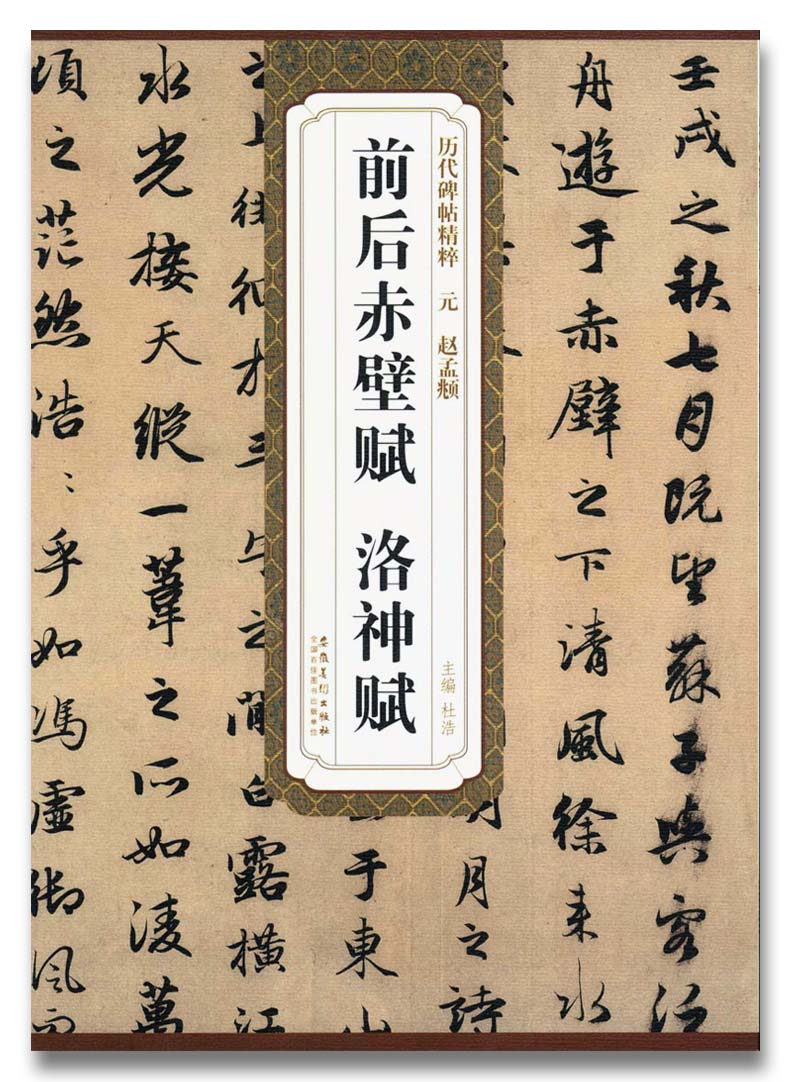 壬戌之秋七月既望蘇子與客泛
舟遊于赤壁之下清風徐来水
月之詩
于東山
历代碑帖精粹 元 赵孟頫
主编 杜浩
前后赤壁赋 洛神赋
安徽美术出版社
全国百佳图书出版单位
之上
之間白露横江
水光接天縱一葦之所如凌萬
頃之茫然浩〻乎如馮虚御風而